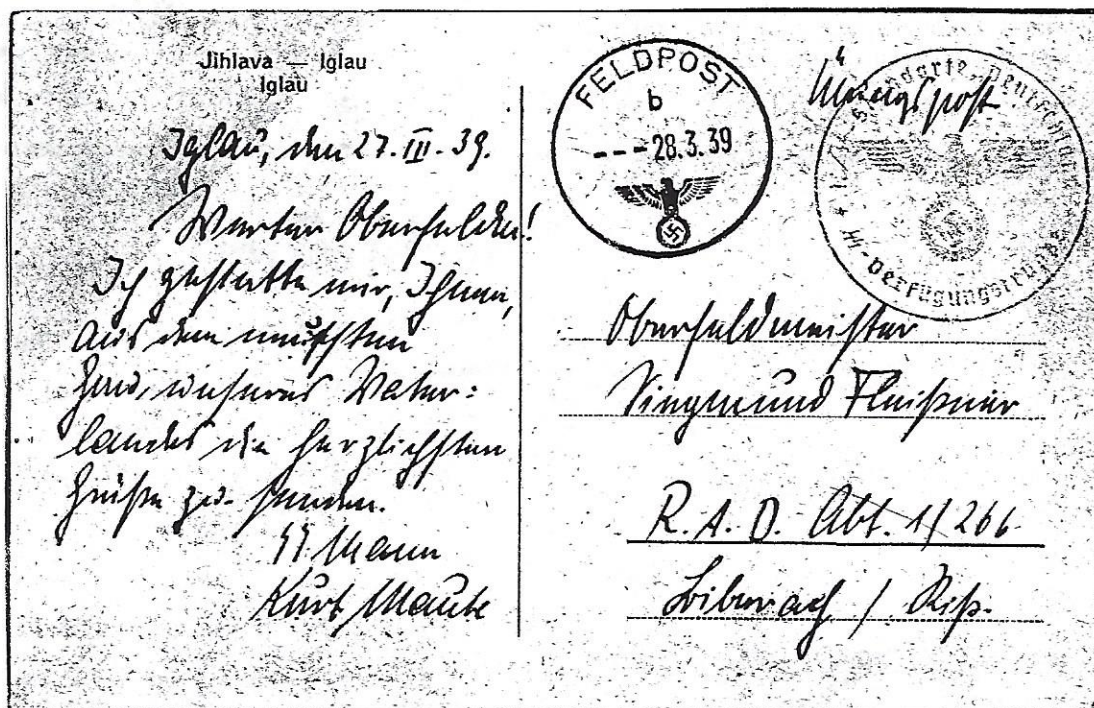 Jihlava — Iglau
Iglau
Iglau, den 27. III. 39.
Werter Oberfeldm.!
Ich gestatte mir, Ihnen,
aus dem neuesten
Gau, unseres Vater=
landes die herzlichsten
Grüße zu senden.
SS Mann
Kurt Maute
FELDPOST
b
--- 28.3.39
SS-Standarte "Deutschland"
SS-Verfügungstruppe
Oberfeldmeister
Siegmund Fleißner
R. A. D. Abt. 1/266
Biberach / Riß.